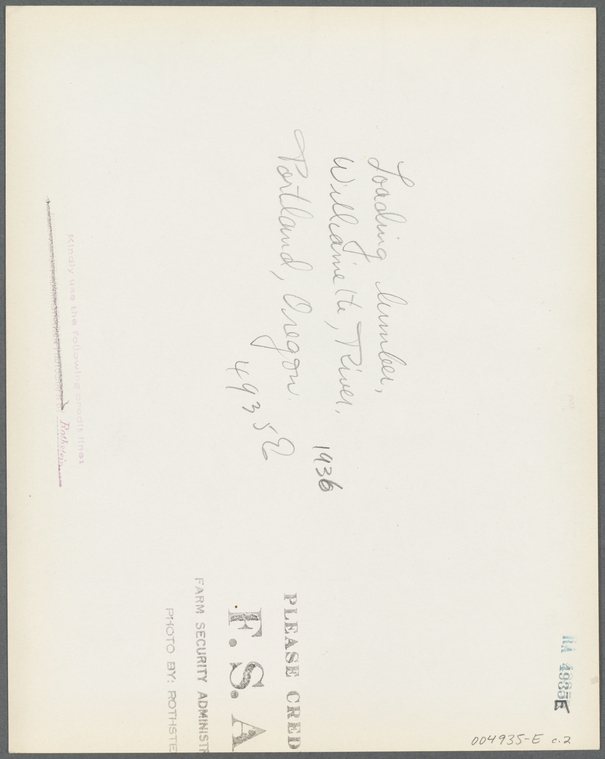 Loading lumber,
Willamette, River,
Portland, Oregon.
4935E
1936
Kindly use the following credit line:
Rothstein
PLEASE CRED
F. S. A
FARM SECURITY ADMINISTR
PHOTO BY: ROTHSTE
RA 4935E
004935-E c.2